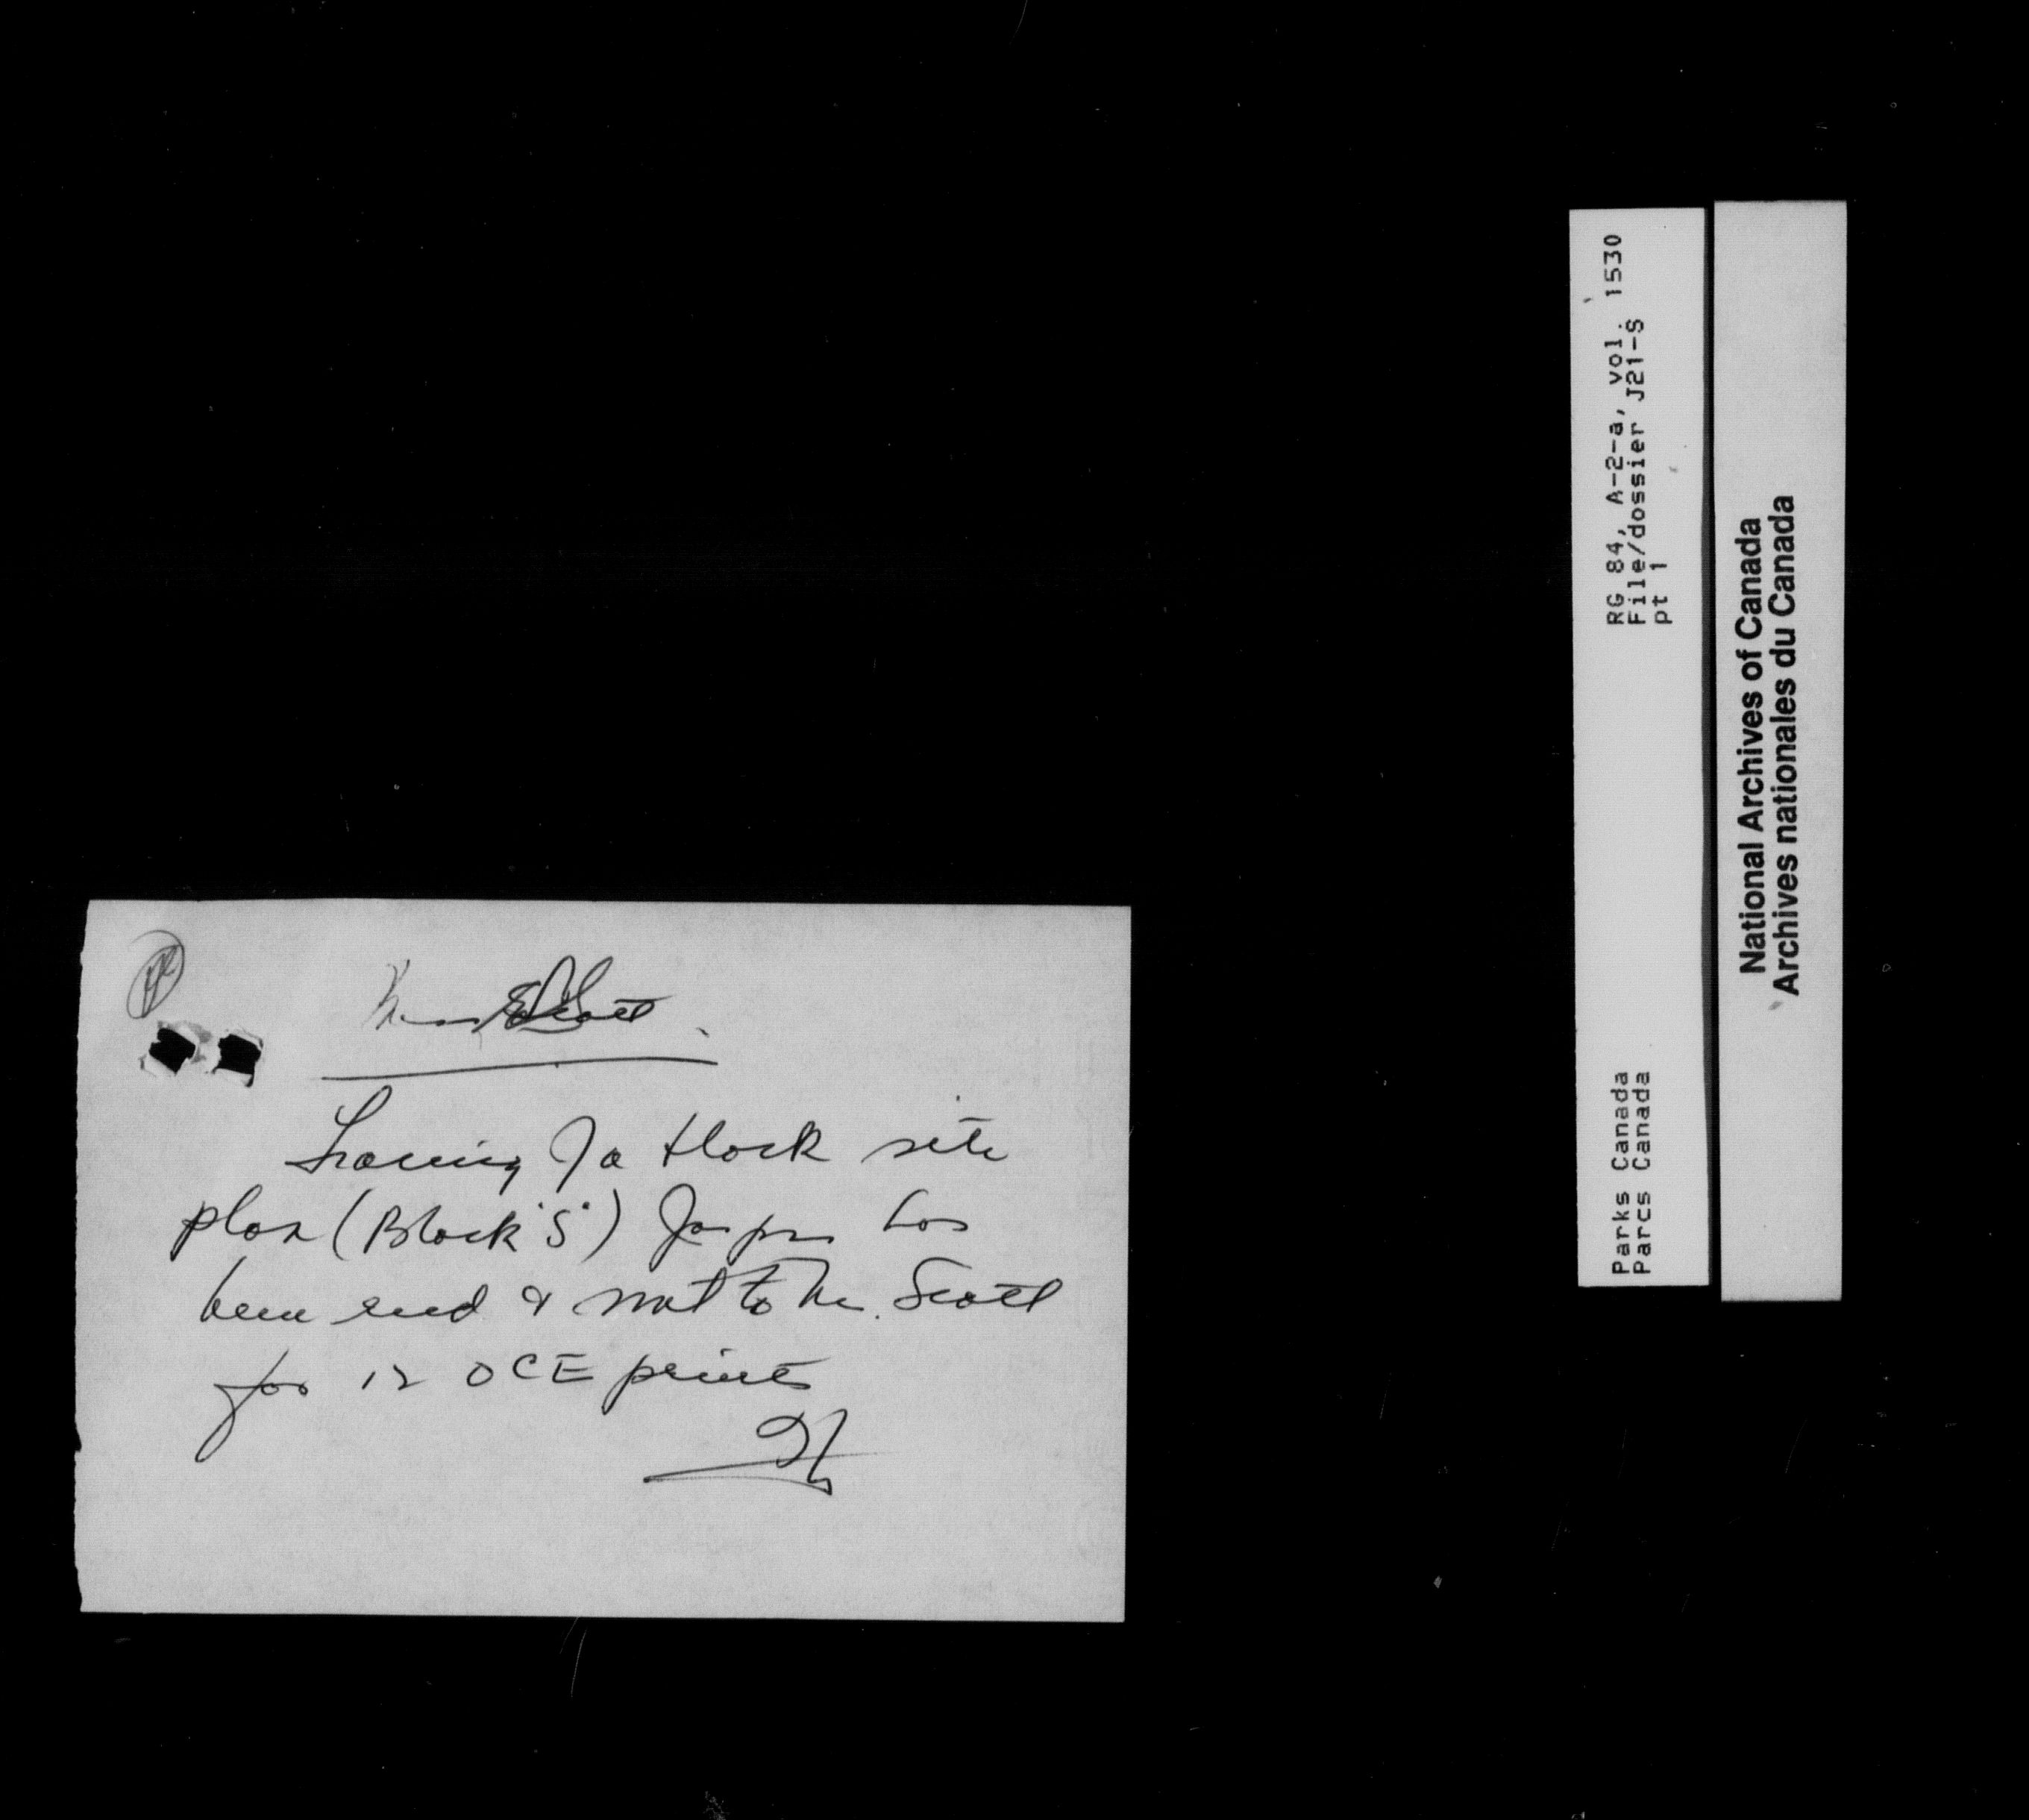 Tracing
site
plan (Block "S") Jasper has
been & to Mr. Scott
for 12 OCE prints
RG 84, A-2-a, vol. 1530
File/dossier J21-S
pt 1
Parks Canada
Parcs Canada
National Archives of Canada
Archives nationales du Canada